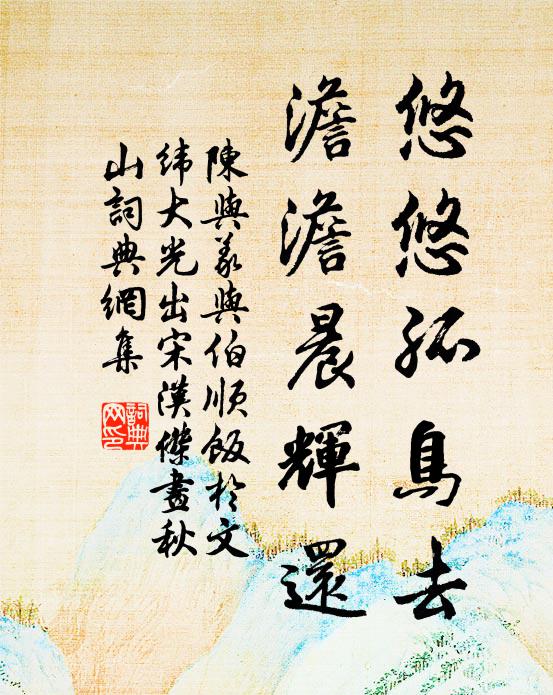 悠悠孤鳥去
澹澹晨輝還
陳與義與伯順飯於文
緯大光出宋漢傑畫秋
山詞典網集
詞典
网印